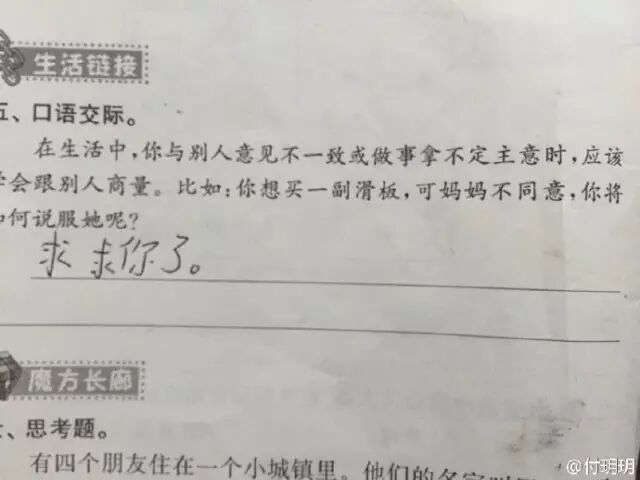 生活链接
五、口语交际。
在生活中,你与别人意见不一致或做事拿不定主意时,应该
学会跟别人商量。比如:你想买一副滑板,可妈妈不同意,你将
如何说服她呢?
求求你了。
魔方长廊
、思考题。
有四个朋友住在一个小城镇里。他们的名字
@付玥玥